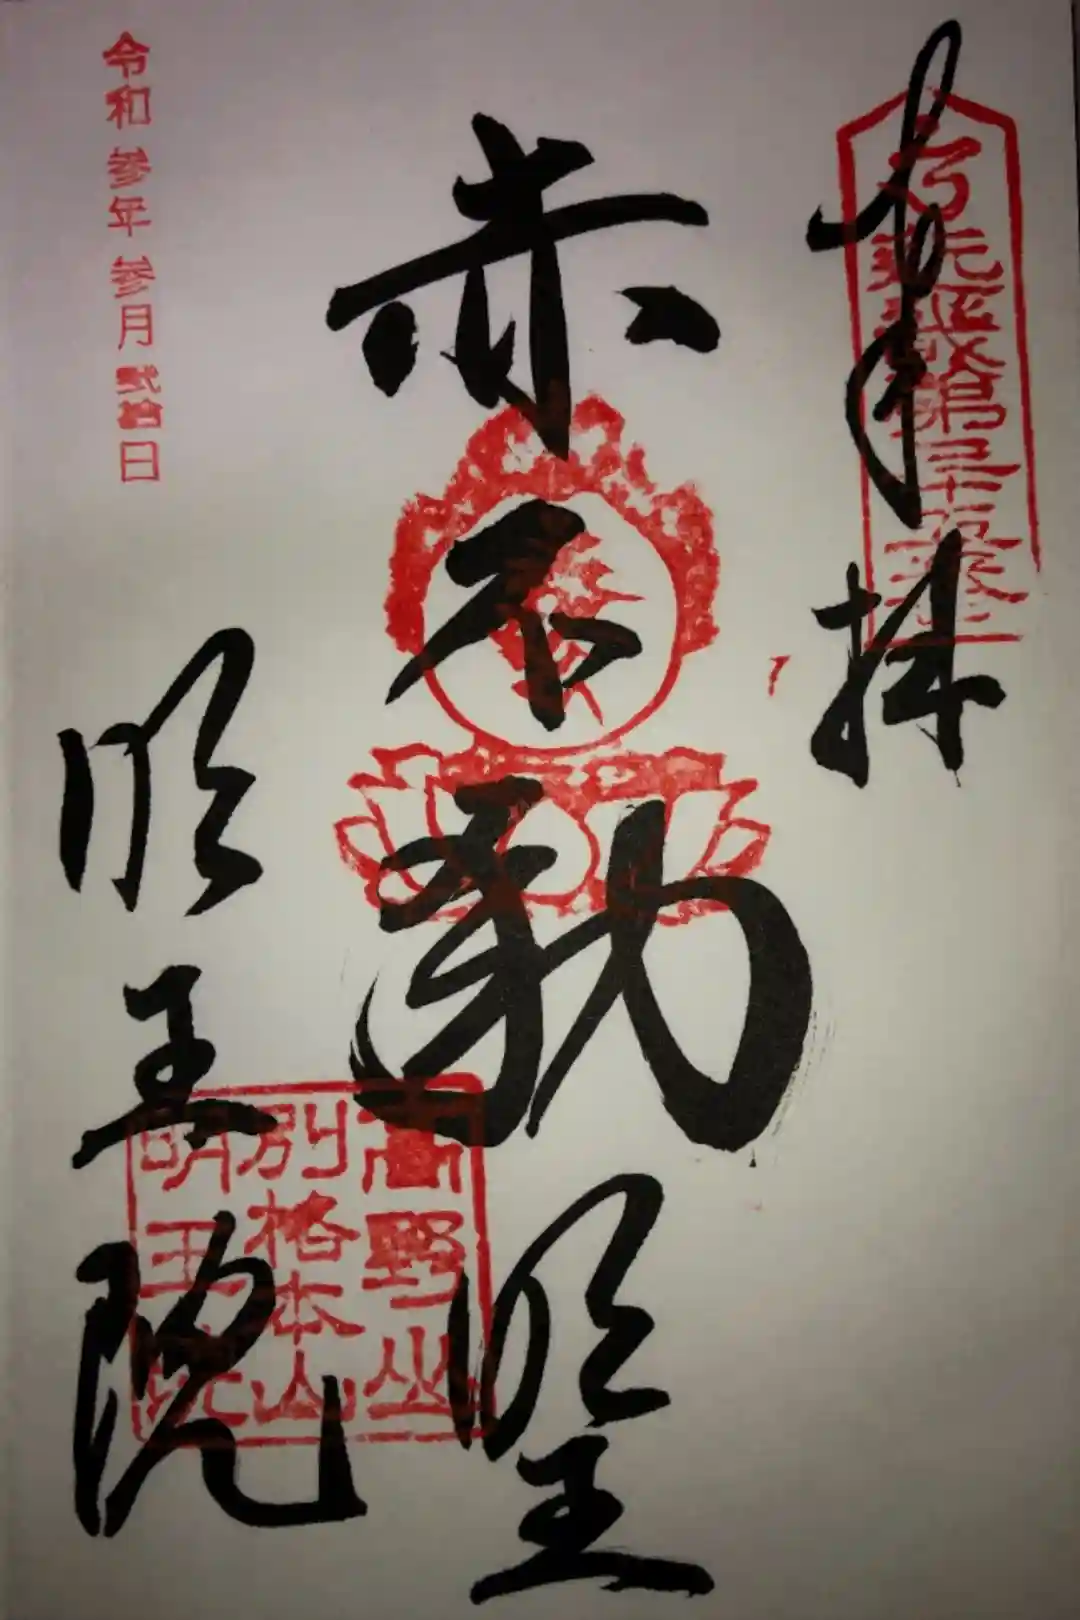 奉拝
赤不動明王
明王院
高野山
別格本山
明王院
令和参年参月弐拾日